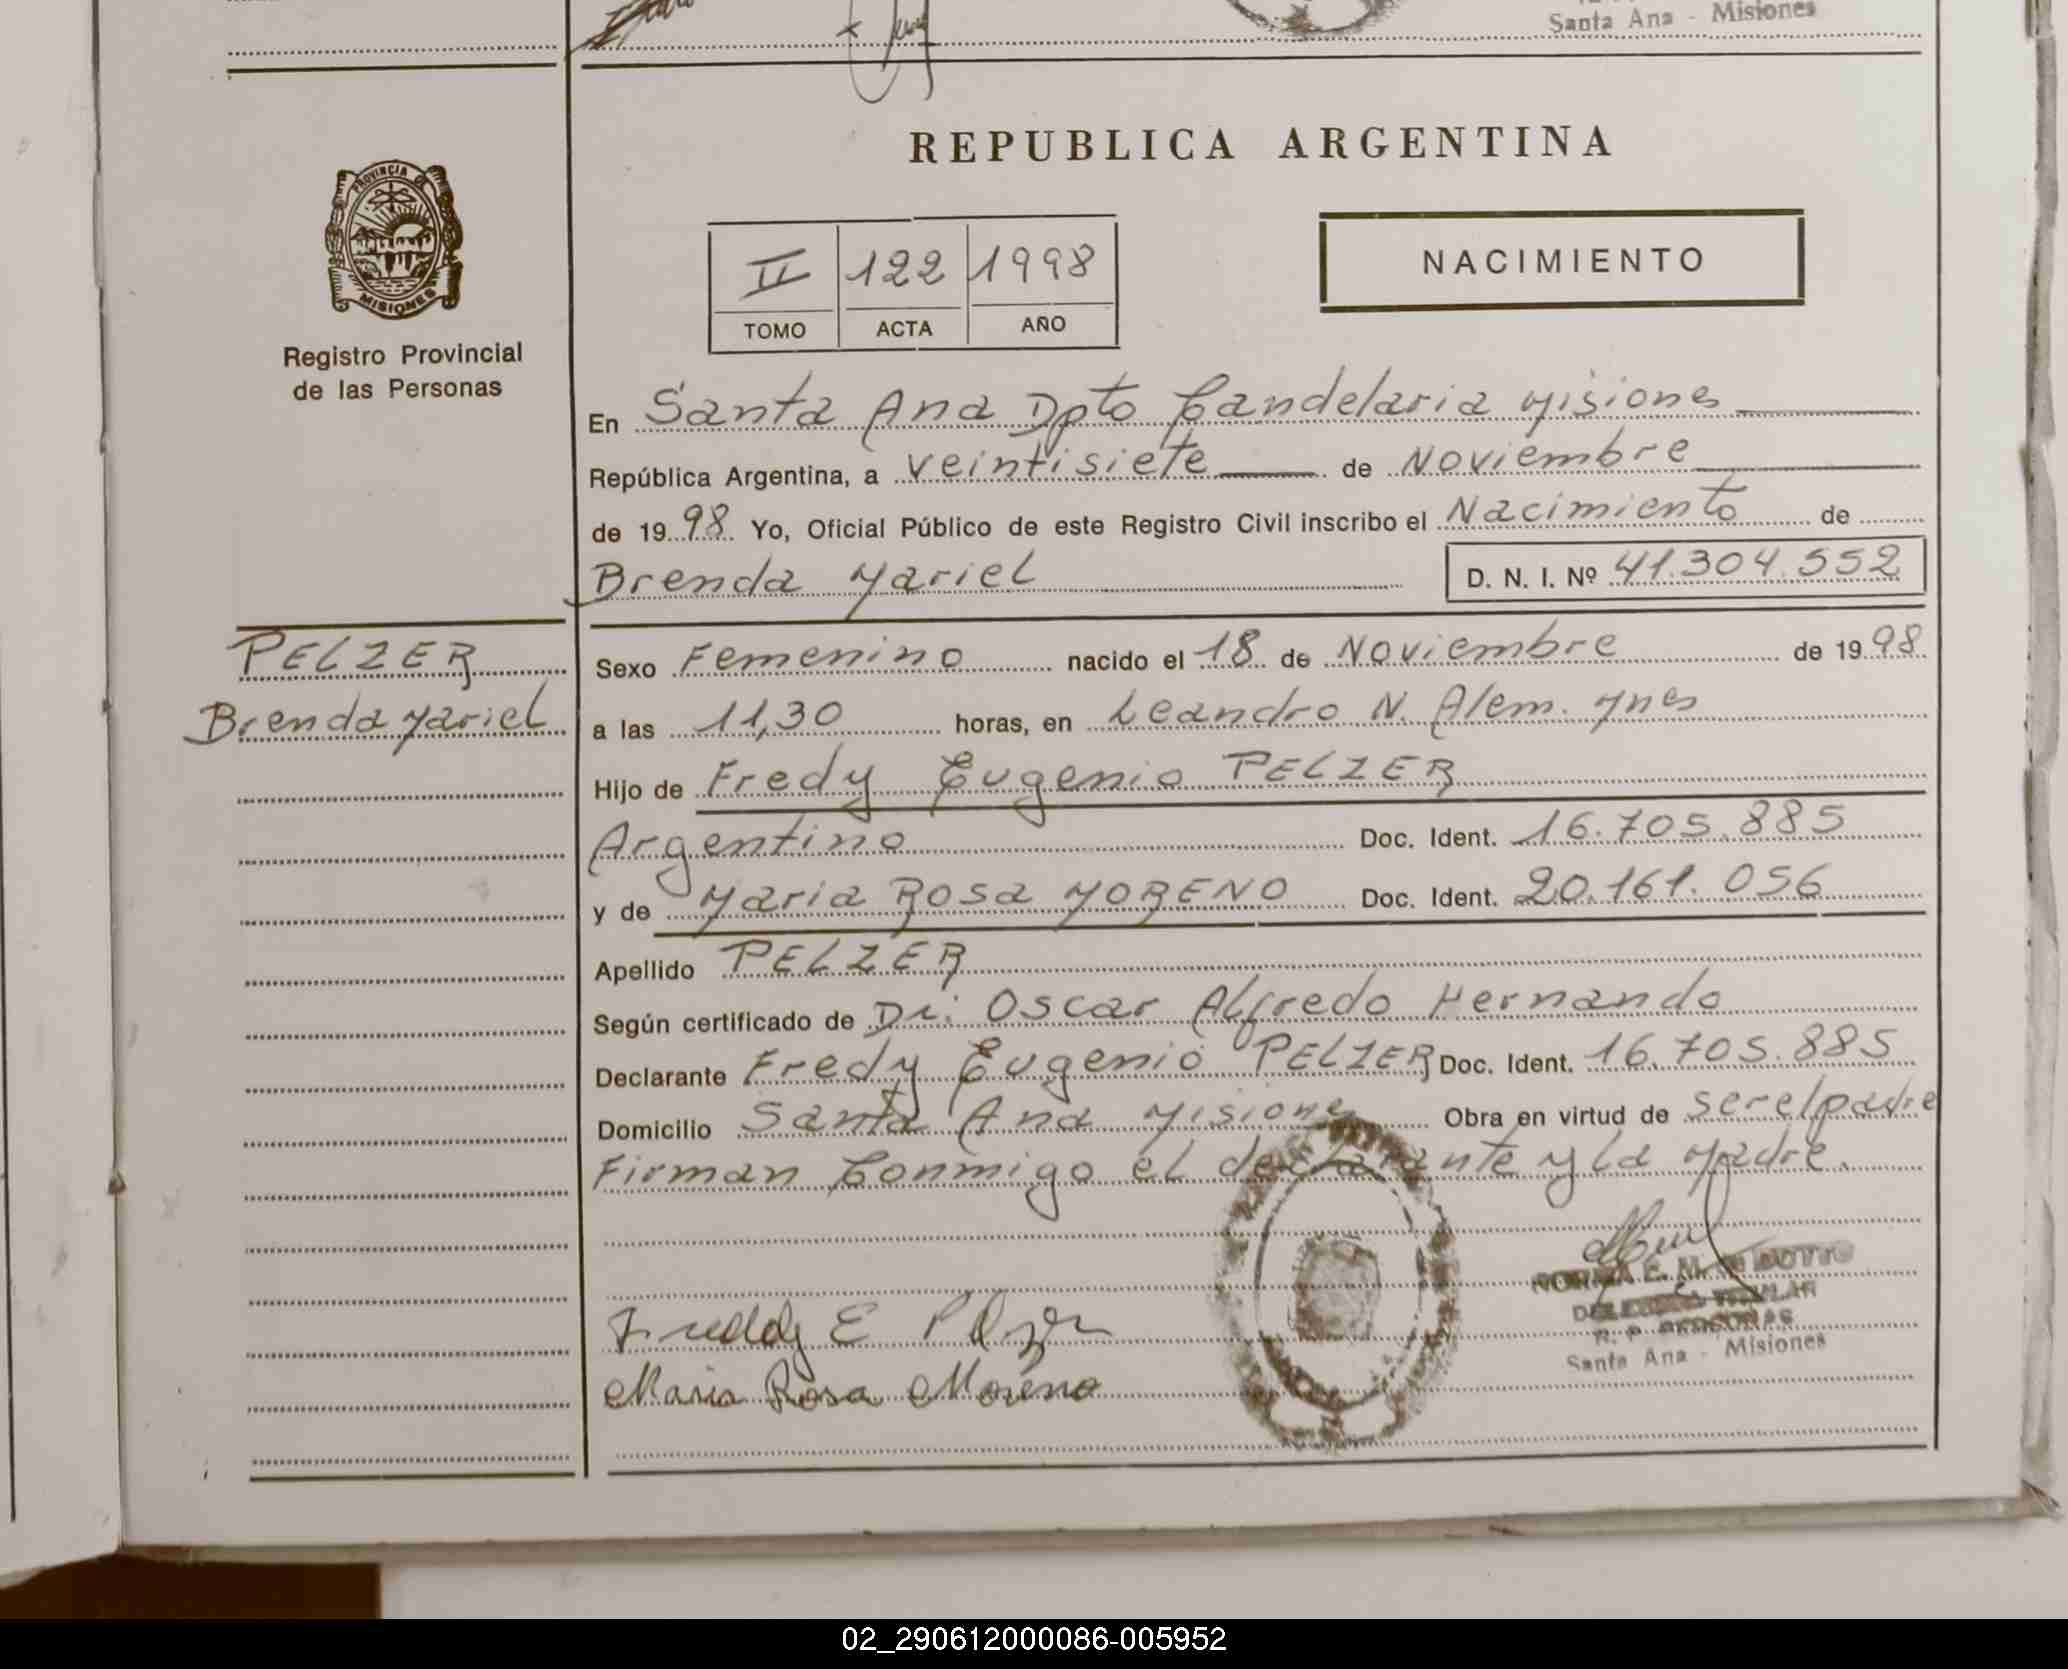 Santa Ana - Misiones
REPUBLICA ARGENTINA
PROVINCIA DE
MISIONES
Registro Provincial
de las Personas
II 122 1998
TOMO ACTA AÑO
NACIMIENTO
En Santa Ana Dpto Candelaria Misiones
República Argentina, a veintisiete de Noviembre
de 1998 Yo, Oficial Público de este Registro Civil inscribo el Nacimiento de
Brenda Mariel D. N. I. Nº 41.304.552
PELZER
Brenda Mariel
Sexo Femenino nacido el 18 de Noviembre de 1998
a las 11,30 horas, en Leandro N. Alem. Mnes
Hijo de Fredy Eugenio PELZER
Argentino Doc. Ident. 16.705.885
y de Maria ROSA MORENO Doc. Ident. 20.161.056
Apellido PELZER
Según certificado de Dr. Oscar Alfredo Hernando
Declarante Fredy Eugenio PELZER Doc. Ident. 16.705.885
Domicilio Santa Ana Misiones Obra en virtud de ser el padre
Firman Conmigo el declarante y la Madre.
NORMA E. M. de DOTTO
DELEGADA TITULAR
R. P. PERSONAS
Santa Ana - Misiones
Freddy E Pelzer
Maria Rosa Moreno
02_290612000086-005952